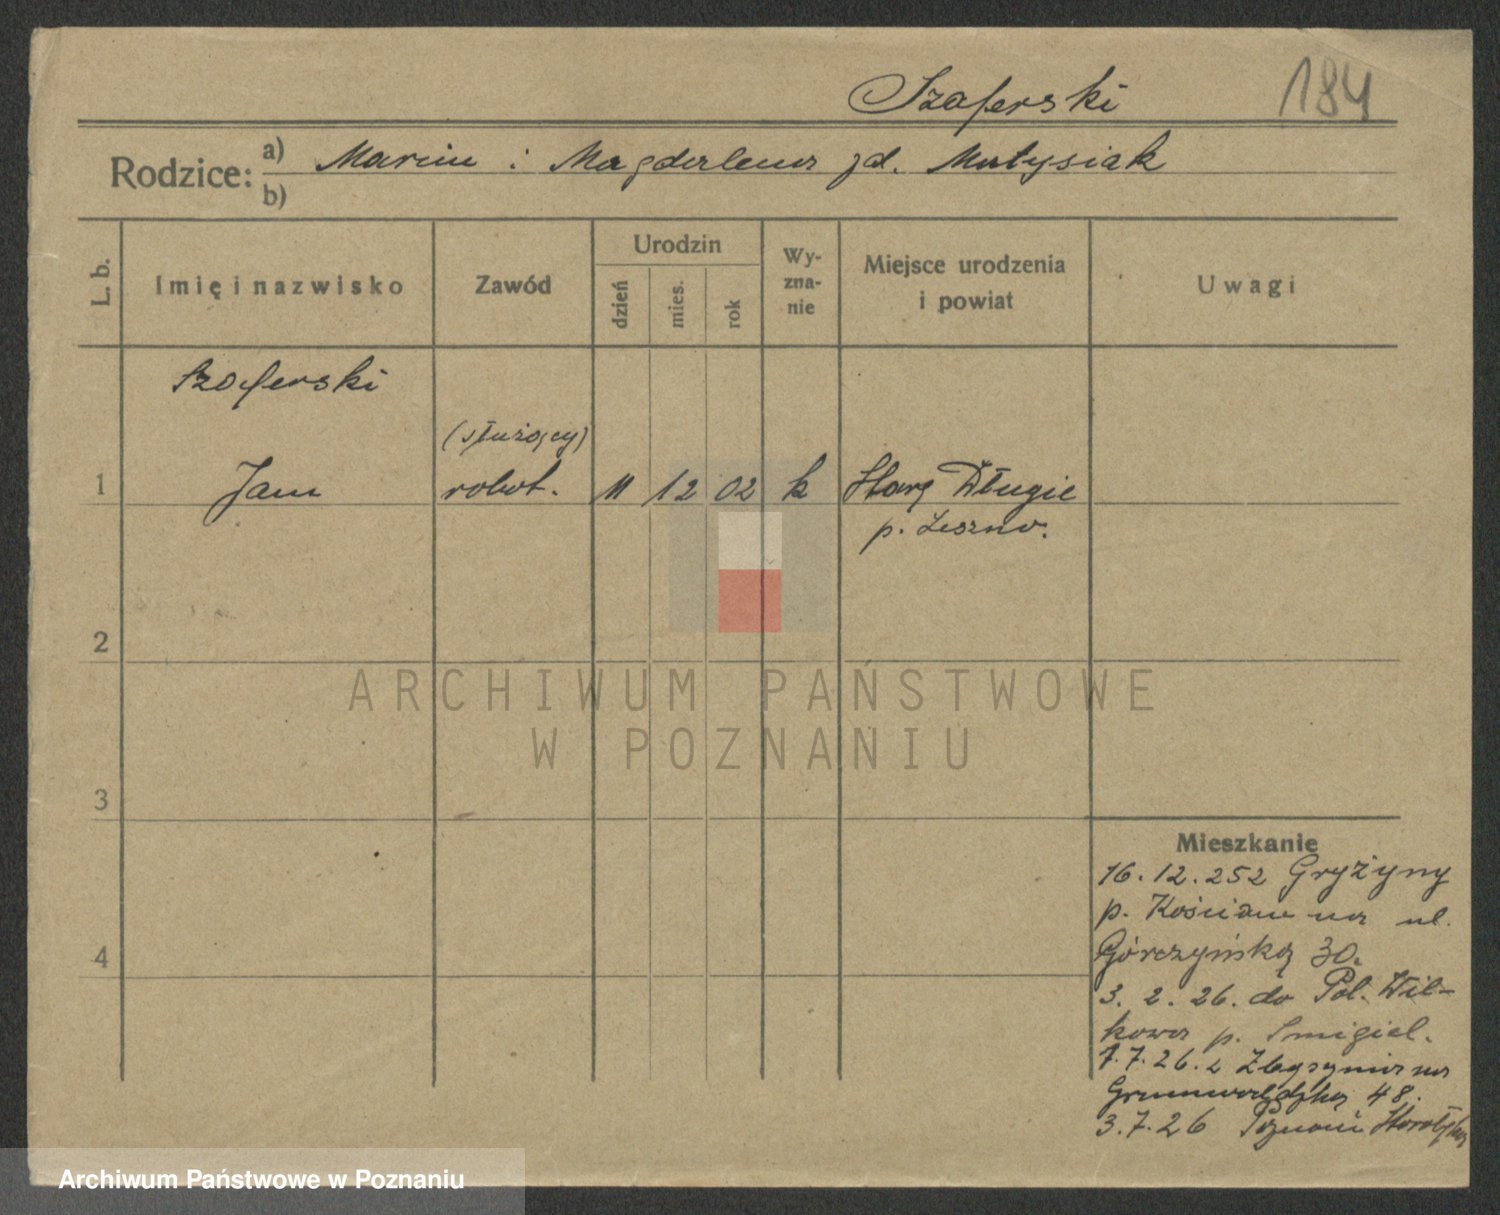 Szaferski
184
Rodzice: a) Marcin i Magdalena zd. Matysiak
b)
L. b.
Imię i nazwisko
Zawód
Urodzin
dzień
mies.
rok
Wy-
zna-
nie
Miejsce urodzenia
i powiat
Uwagi
Szaferski
(służący)
1 Jan robot. 11 12 02 k Stare Długie
p. Leszno.
2
3
4
ARCHIWUM PAŃSTWOWE
W POZNANIU
Mieszkanie
16.12.25 z Gryżyny
p. Kościan na ul.
Górczyńską 30.
3. 2. 26. do Pol. Wil-
kowa p. Śmigiel.
7.7.26. z na
Grunwaldzką 48.
3.7.26 Poznań
Archiwum Państwowe w Poznaniu